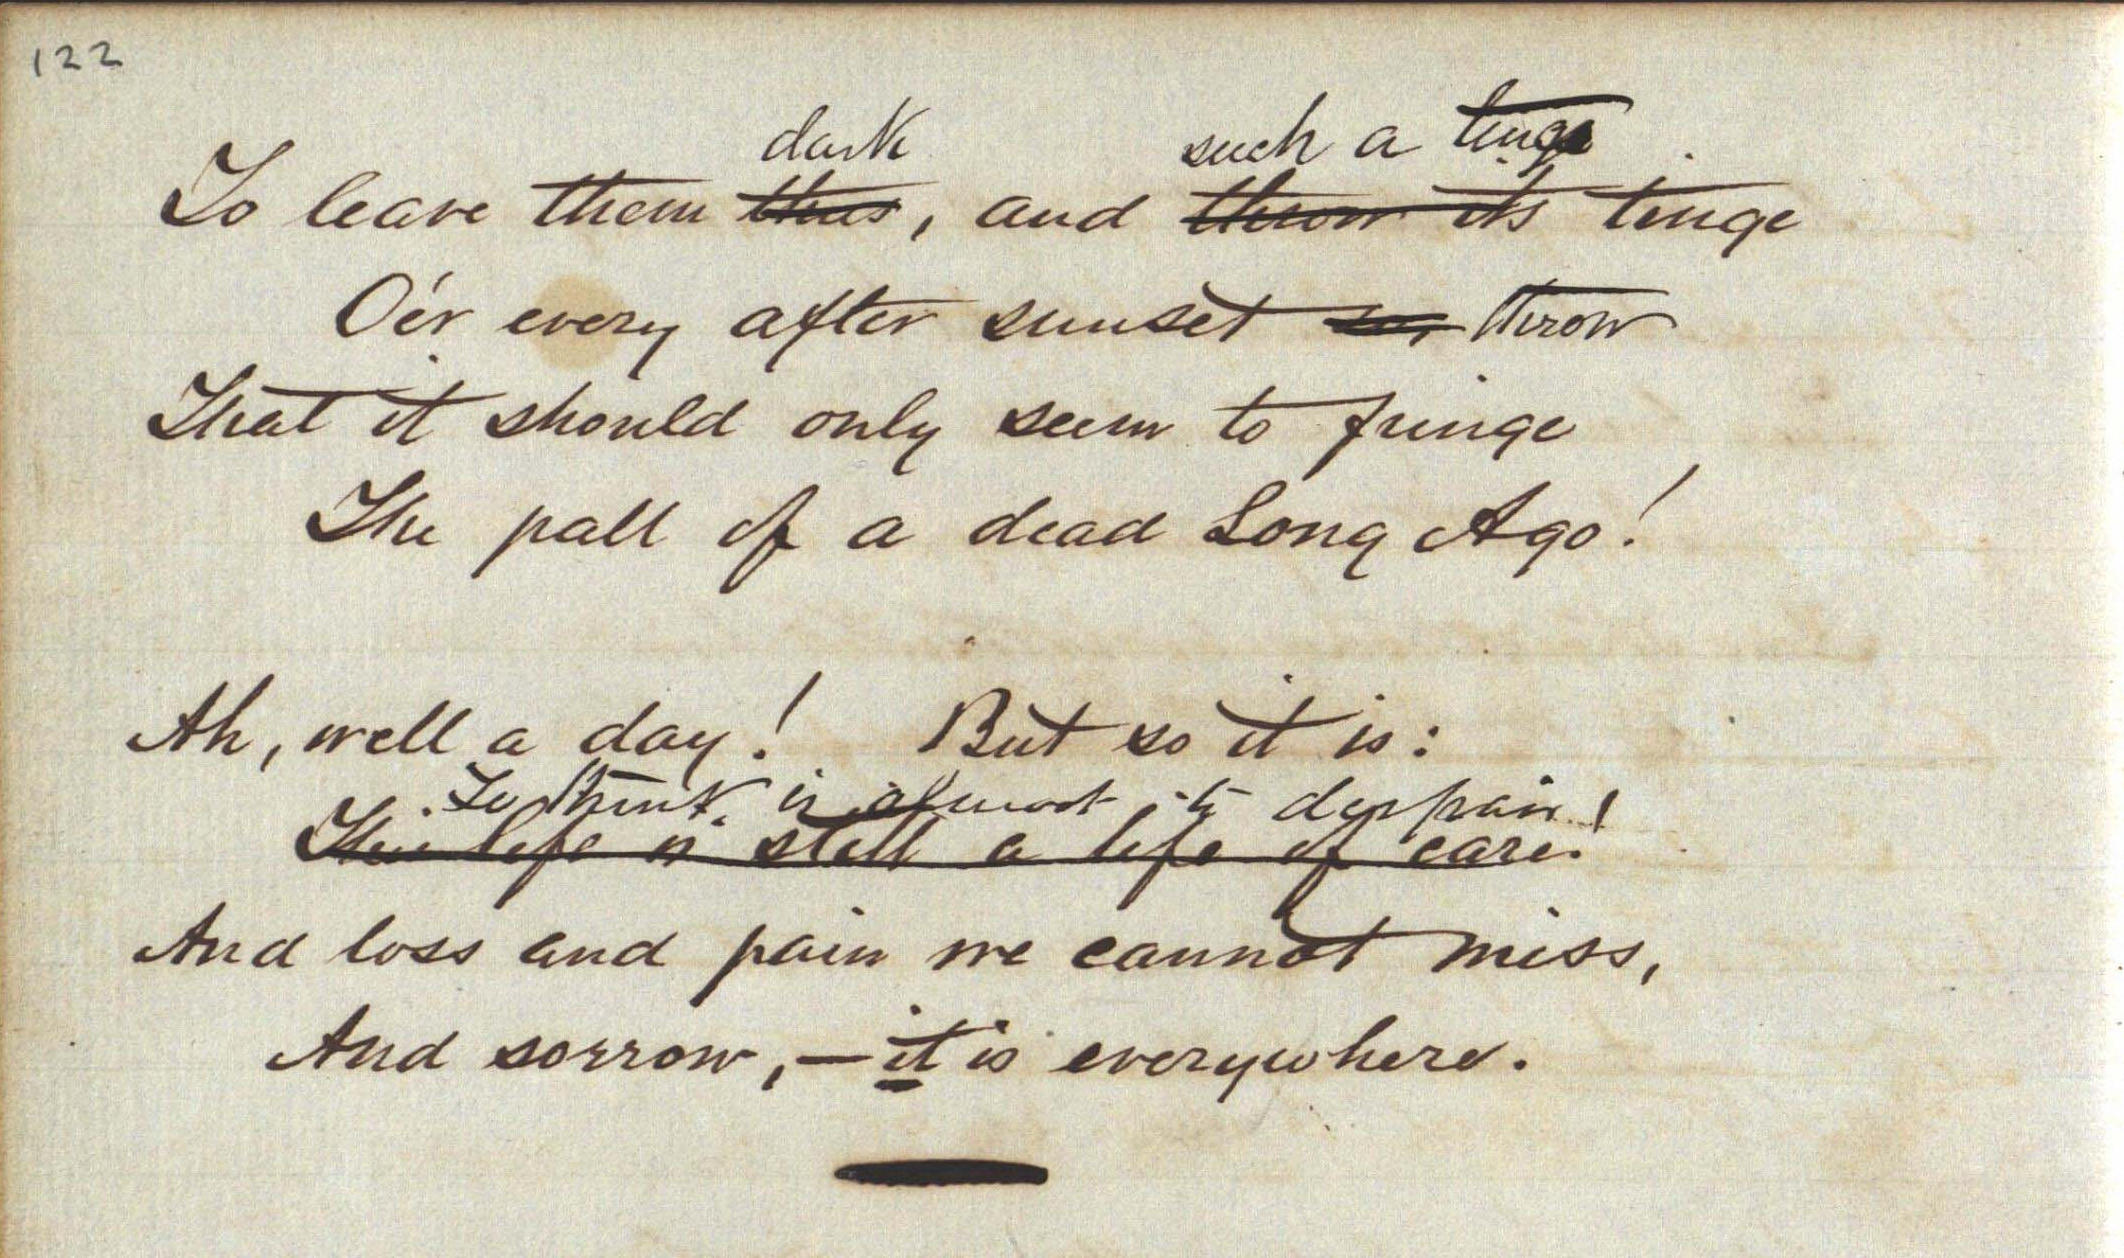 122
dark such a tinge
To leave them thus, and throw its tinge
O'er every after sunset so, throw
That it should only seem to fringe
The pall of a dead Long Ago!
Ah, well a day! But so it is:
To think is almost to despair!
This life is still a life of care.
And loss and pain we cannot miss,
And sorrow,—it is everywhere.